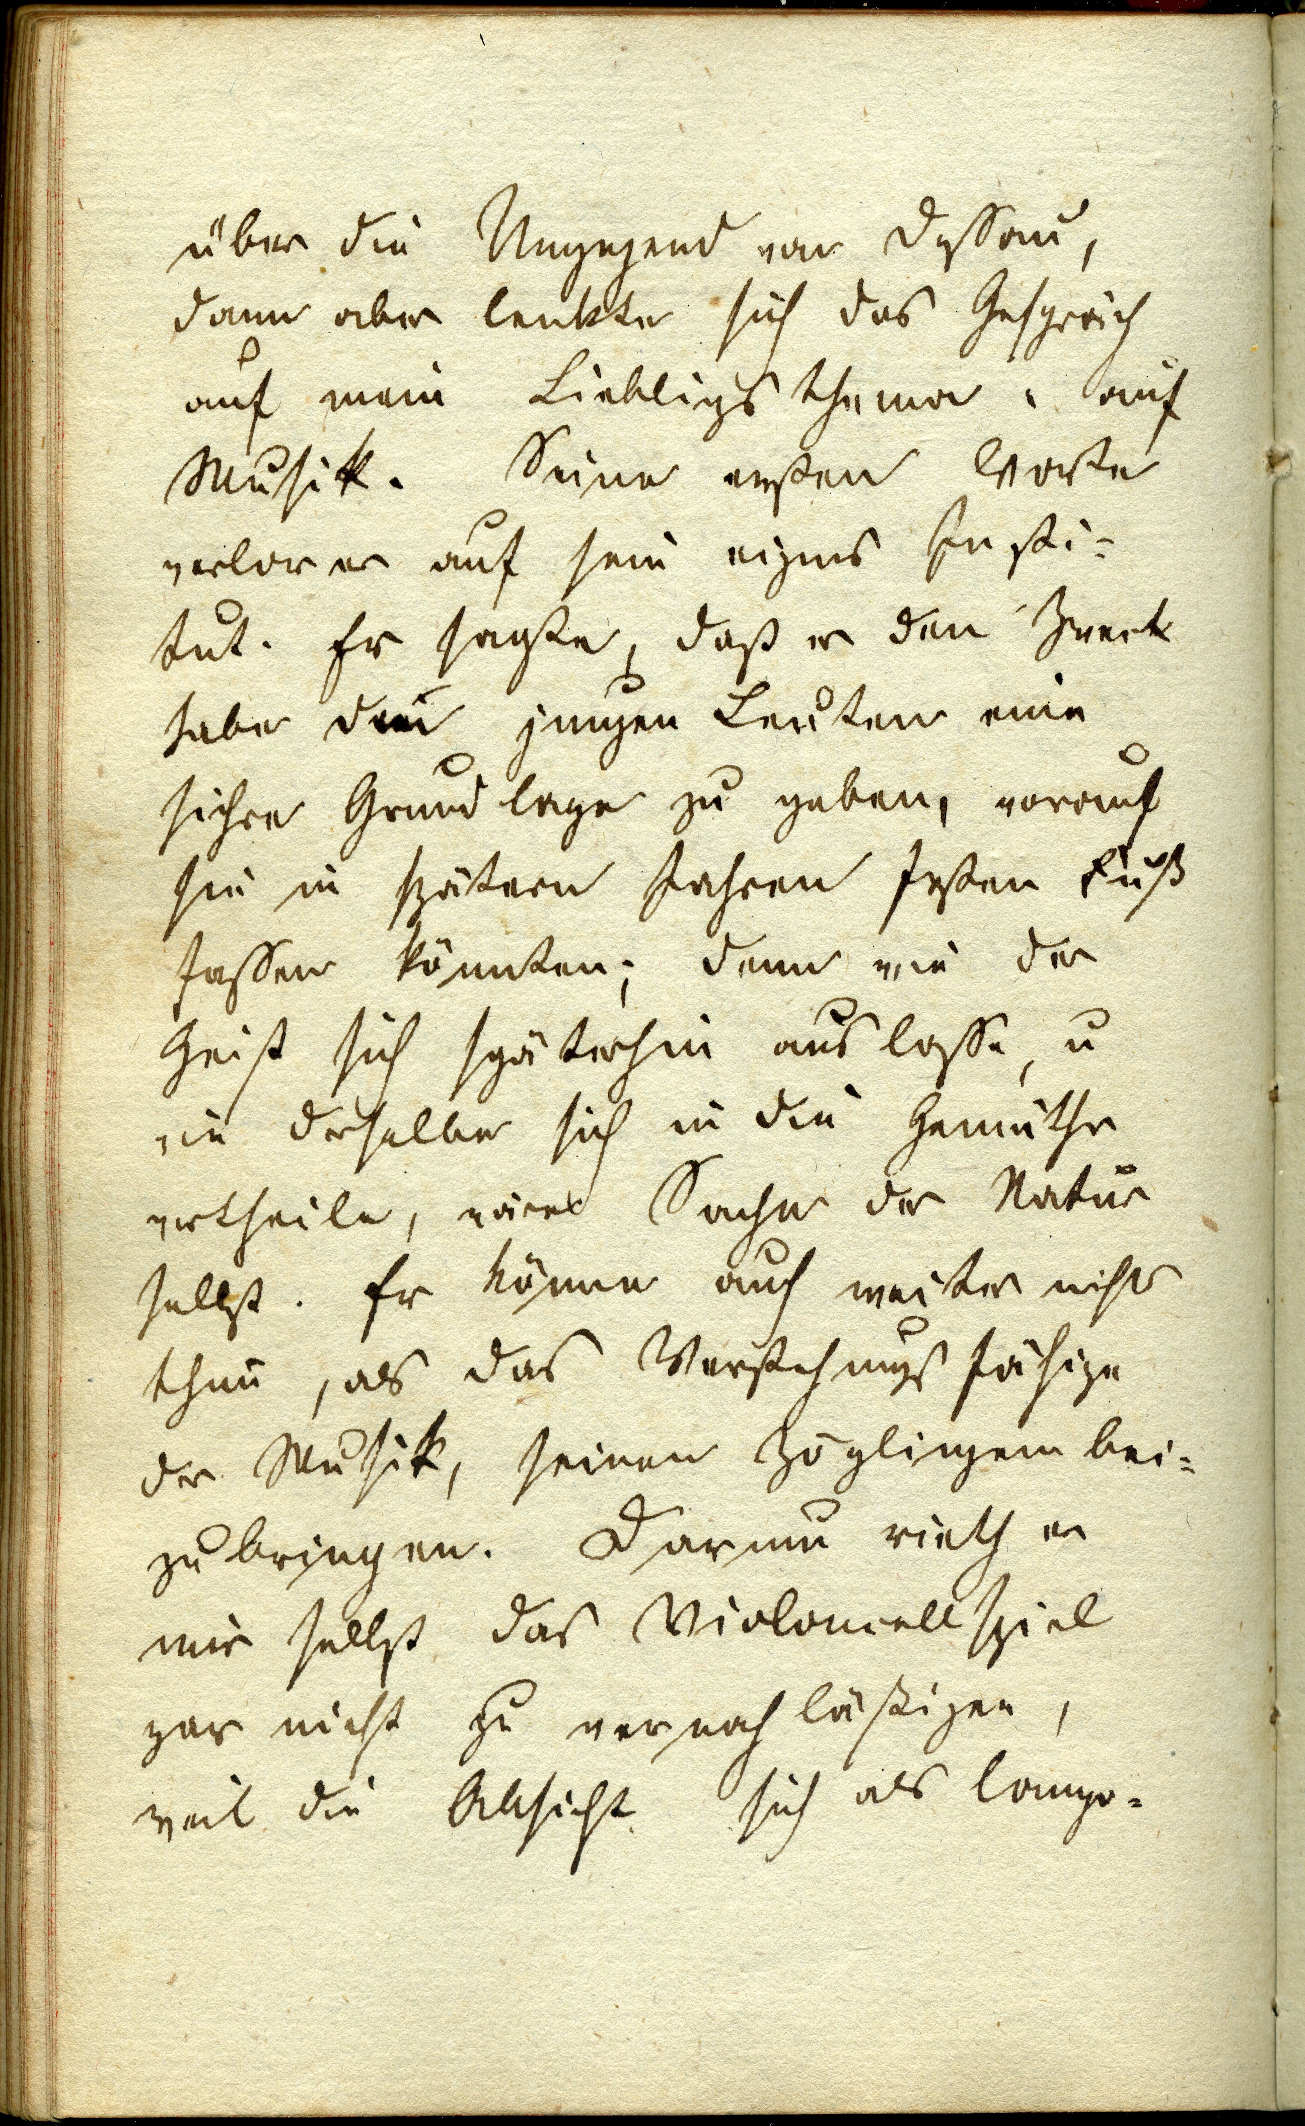 über die Umgegend von Dessau,
dann aber lenkte sich das Gespräch
auf mein Lieblingsthema: auf
Musik. Seine ersten Worte
verlor er auf sein eignes Insti-
tut. Er sagte, daß er den Zweck
habe den jungen Leuten eine
sichre Grundlage zu geben, worauf
sie in spätern Jahren festen Fuß
fassen könnten; denn wie der
Geist sich späterhin auslasse, u
wie derselbe sich in die Gemüther
vertheile, wäre Sache der Natur
selbst. Er könne auch weiter nichts
thun, als das Verstehungsfähige
der Musik, seinen Zöglingen bei-
zubringen. Darum rieth er
mir selbst das Violoncellspiel
gar nicht zu vernachläßigen,
weil die Absicht sich als Compo-